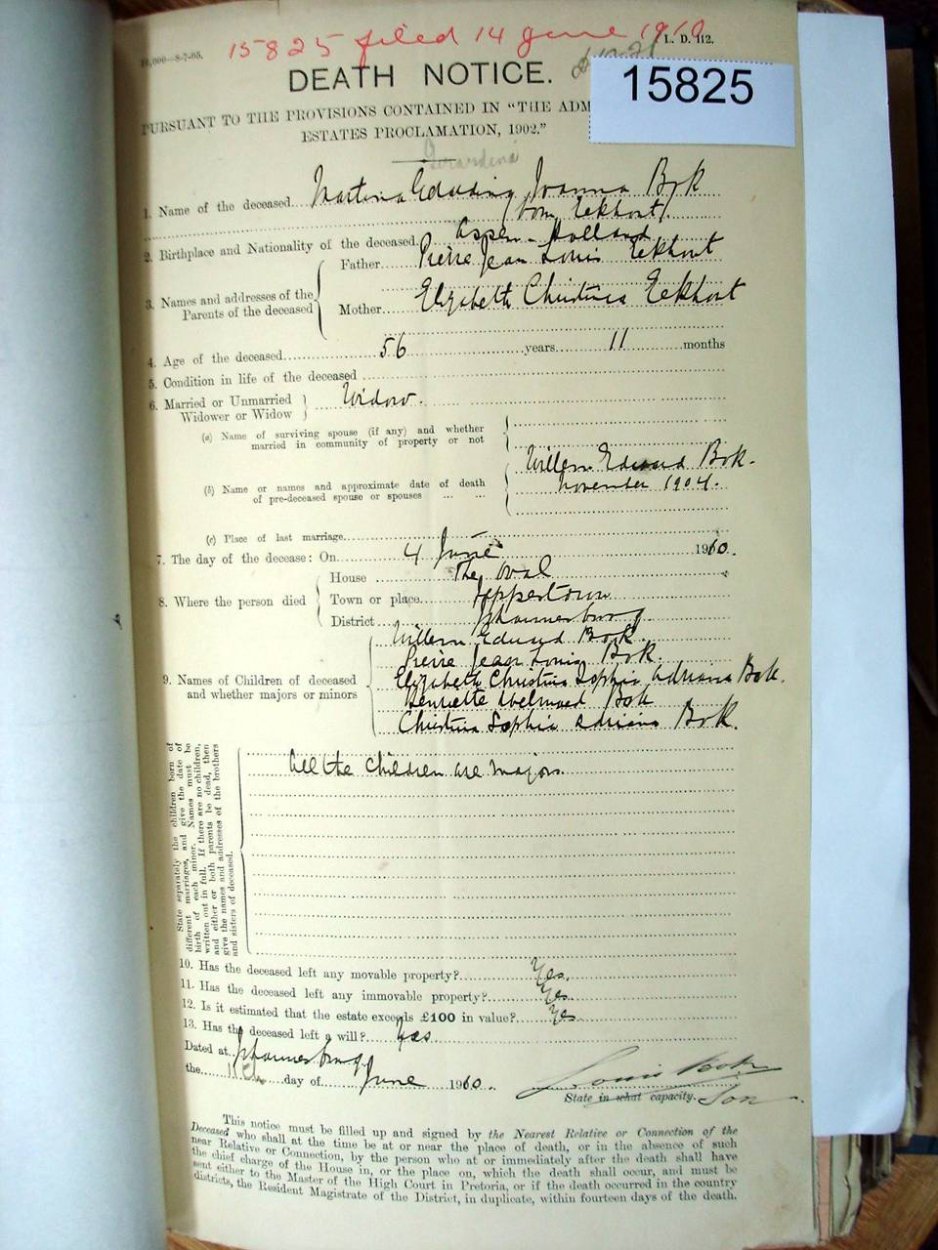 15825 filed 14 June 1910
10,000—8-7-05.
L. D. 112.
DEATH NOTICE.
15825
PURSUANT TO THE PROVISIONS CONTAINED IN "THE ADM
ESTATES PROCLAMATION, 1902."
Gerardina
1. Name of the deceased Martina Joanna Bok
born Eekhout
2. Birthplace and Nationality of the deceased. Assen - Holland
Father Pierre Jean Louis Eekhout
3. Names and addresses of the
Parents of the deceased
Mother Elizabeth Christina Eekhout
4. Age of the deceased 56 years 11 months
5. Condition in life of the deceased
6. Married or Unmarried
Widower or Widow
Widow.
(a) Name of surviving spouse (if any) and whether
married in community of property or not
(b) Name or names and approximate date of death
of pre-deceased spouse or spouses
Willem Eduard Bok.
November 1904.
(c) Place of last marriage
7. The day of the decease: On 4 June 1910.
8. Where the person died
House The Oval
Town or place Jeppestown
District Johannesburg.
9. Names of Children of deceased
and whether majors or minors
Willem Eduard Bok
Pierre Jean Louis Bok.
Elizabeth Christina Sophia Adriana Bok.
Henriette Bok
Christina Sophia Adriana Bok.
State separately the children born of
different marriages, and give the date of
birth of each minor. Names must be
written out in full. If there are no children,
and either or both parents be dead, then
give the names and addresses of the brothers
and sisters of deceased.
All the children are majors.
10. Has the deceased left any movable property? Yes.
11. Has the deceased left any immovable property? Yes
12. Is it estimated that the estate exceeds £100 in value? Yes
13. Has the deceased left a will? Yes
Dated at Johannesburg
the 11th day of June 1910.
Louis Bok
State in what capacity. Son
This notice must be filled up and signed by the Nearest Relative or Connection of the
Deceased who shall at the time be at or near the place of death, or in the absence of such
near Relative or Connection, by the person who at or immediately after the death shall have
the chief charge of the House in, or the place on, which the death shall occur, and must be
sent either to the Master of the High Court in Pretoria, or if the death occurred in the country
districts, the Resident Magistrate of the District, in duplicate, within fourteen days of the death.